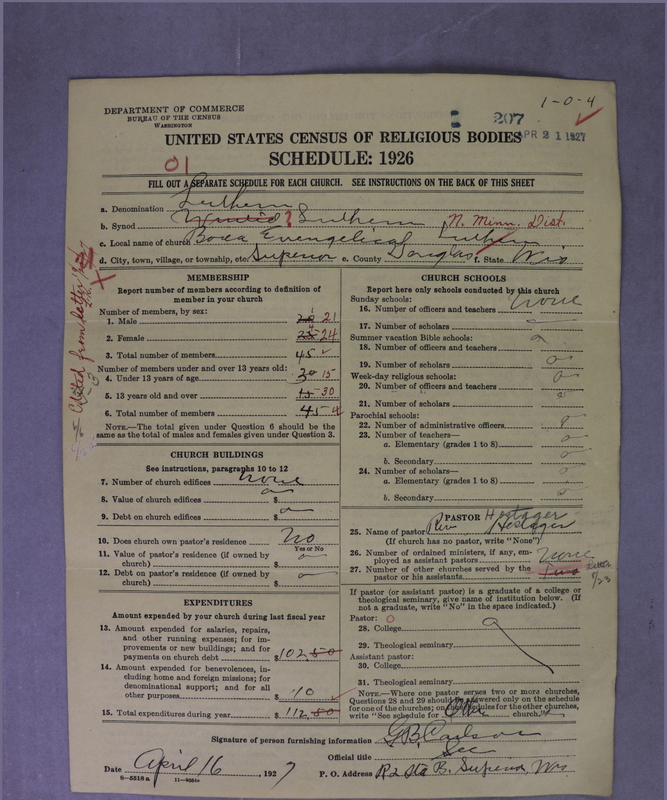 1-0-4
DEPARTMENT OF COMMERCE
BUREAU OF THE CENSUS
WASHINGTON
207
APR 21 1927
UNITED STATES CENSUS OF RELIGIOUS BODIES
SCHEDULE: 1926
01
FILL OUT A SEPARATE SCHEDULE FOR EACH CHURCH. SEE INSTRUCTIONS ON THE BACK OF THIS SHEET
a. Denomination Luthern
b. Synod United ? Luthern N. Minn. Dist.
c. Local name of church Evangelical Luthern
d. City, town, village, or township, etc. Superior e. County Douglas f. State Wis
MEMBERSHIP
Report number of members according to definition of member in your church
Number of members, by sex:
1. Male 21
2. Female 24
3. Total number of members 45
Number of members under and over 13 years old:
4. Under 13 years of age 30 15
5. 13 years old and over 15 30
6. Total number of members 45
NOTE.—The total given under Question 6 should be the same as the total of males and females given under Question 3.
CHURCH BUILDINGS
See instructions, paragraphs 10 to 12
7. Number of church edifices none
8. Value of church edifices $ 0
9. Debt on church edifices $ 0
10. Does church own pastor's residence No
Yes or No
11. Value of pastor's residence (if owned by church) $ 0
12. Debt on pastor's residence (if owned by church) $ 0
EXPENDITURES
Amount expended by your church during last fiscal year
13. Amount expended for salaries, repairs, and other running expenses; for improvements or new buildings; and for payments on church debt $ 102.50
14. Amount expended for benevolences, including home and foreign missions; for denominational support; and for all other purposes $ 10
15. Total expenditures during year $ 112.50
CHURCH SCHOOLS
Report here only schools conducted by this church
Sunday schools:
16. Number of officers and teachers none
17. Number of scholars
Summer vacation Bible schools:
18. Number of officers and teachers 0
19. Number of scholars 0
Week-day religious schools:
20. Number of officers and teachers 0
21. Number of scholars 0
Parochial schools:
22. Number of administrative officers 0
23. Number of teachers—
a. Elementary (grades 1 to 8) 0
b. Secondary 0
24. Number of scholars—
a. Elementary (grades 1 to 8) 0
b. Secondary 0
PASTOR
Hestager
25. Name of pastor Rev Hestager
(If church has no pastor, write "None")
26. Number of ordained ministers, if any, employed as assistant pastors None
27. Number of other churches served by the pastor or his assistants Two
If pastor (or assistant pastor) is a graduate of a college or theological seminary, give name of institution below. (If not a graduate, write "No" in the space indicated.)
Pastor: 0
28. College
29. Theological seminary
Assistant pastor:
30. College
31. Theological seminary
NOTE.—Where one pastor serves two or more churches, Questions 28 and 29 should be answered only on the schedule for one of the churches; on the schedules for the other churches, write "See schedule for Other church."
Signature of person furnishing information G.B. Carlson
Official title Sec
Date April 16, 1927
P. O. Address R2 Sta B. Superior, Wis
8-5518 a